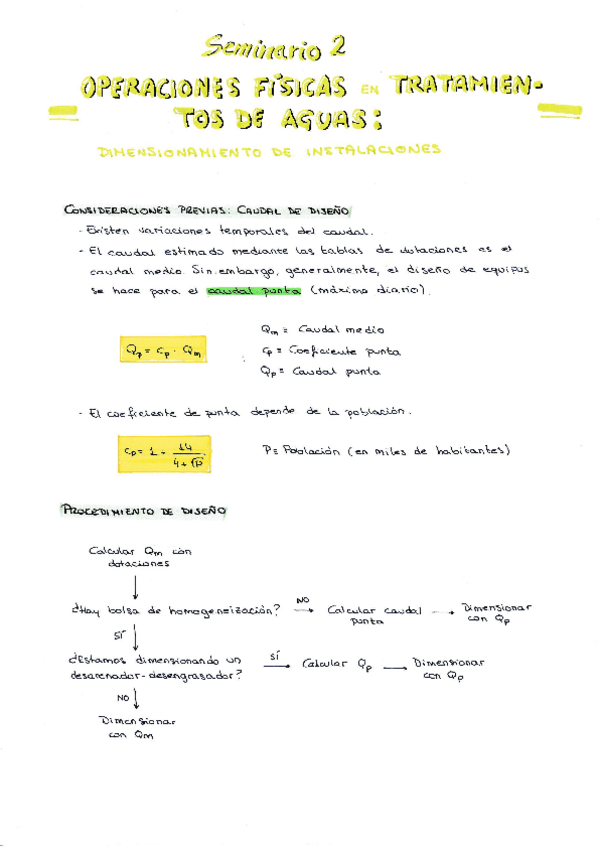 Seminario 2
OPERACIONES FÍSICAS EN TRATAMIEN-
TOS DE AGUAS:
DIMENSIONAMIENTO DE INSTALACIONES
CONSIDERACIONES PREVIAS: CAUDAL DE DISEÑO
- Existen variaciones temporales del caudal.
- El caudal estimado mediante las tablas de dotaciones es el
caudal medio. Sin embargo, generalmente, el diseño de equipos
se hace para el caudal punta (máximo diario).
Qp = Cp · Qm
Qm ≡ Caudal medio
Cp ≡ Coeficiente punta
Qp ≡ Caudal punta
- El coeficiente de punta depende de la población.
Cp = 1 + 14 / (4 + √P)
P ≡ Población (en miles de habitantes)
PROCEDIMIENTO DE DISEÑO
Calcular Qm con
dotaciones
↓
¿Hay bolsa de homogeneización? NO → Calcular caudal punta → Dimensionar con Qp
SÍ ↓
¿Estamos dimensionando un desarenador-desengrasador? SÍ → Calcular Qp → Dimensionar con Qp
NO ↓
Dimensionar
con Qm